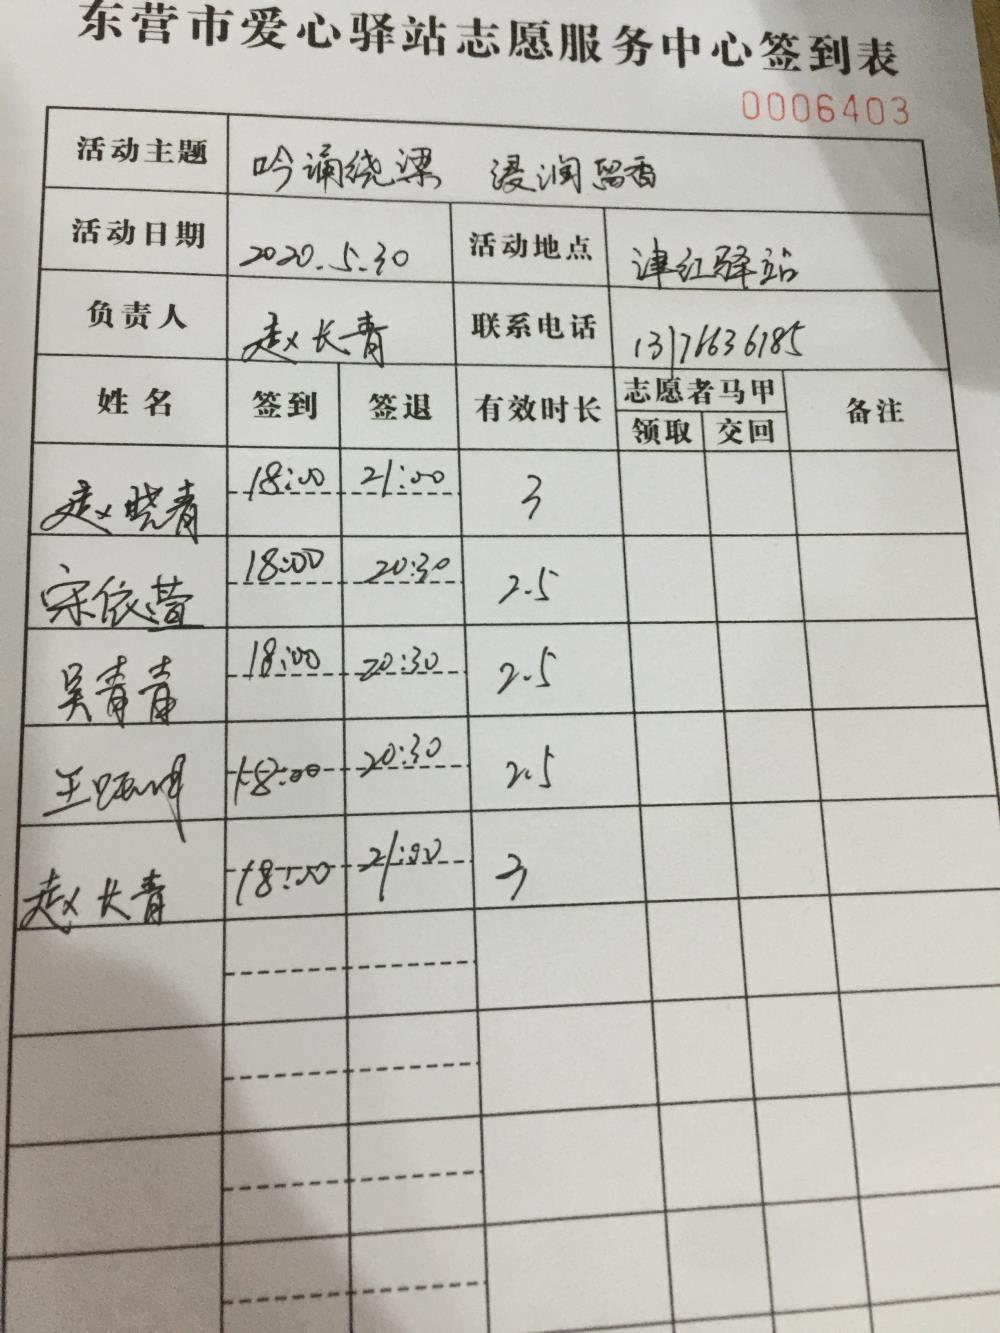 东营市爱心驿站志愿服务中心签到表
0006403
活动主题 吟诵绕梁 浸润留香
活动日期 2020.5.30 活动地点 津红驿站
负责人 赵长青 联系电话 13176636185
姓名 签到 签退 有效时长 志愿者马甲 备注
领取 交回
赵晓青 18:00 21:00 3
宋依萱 18:00 20:30 2.5
吴青青 18:00 20:30 2.5
王 18:00 20:30 2.5
赵长青 18:00 21:00 3